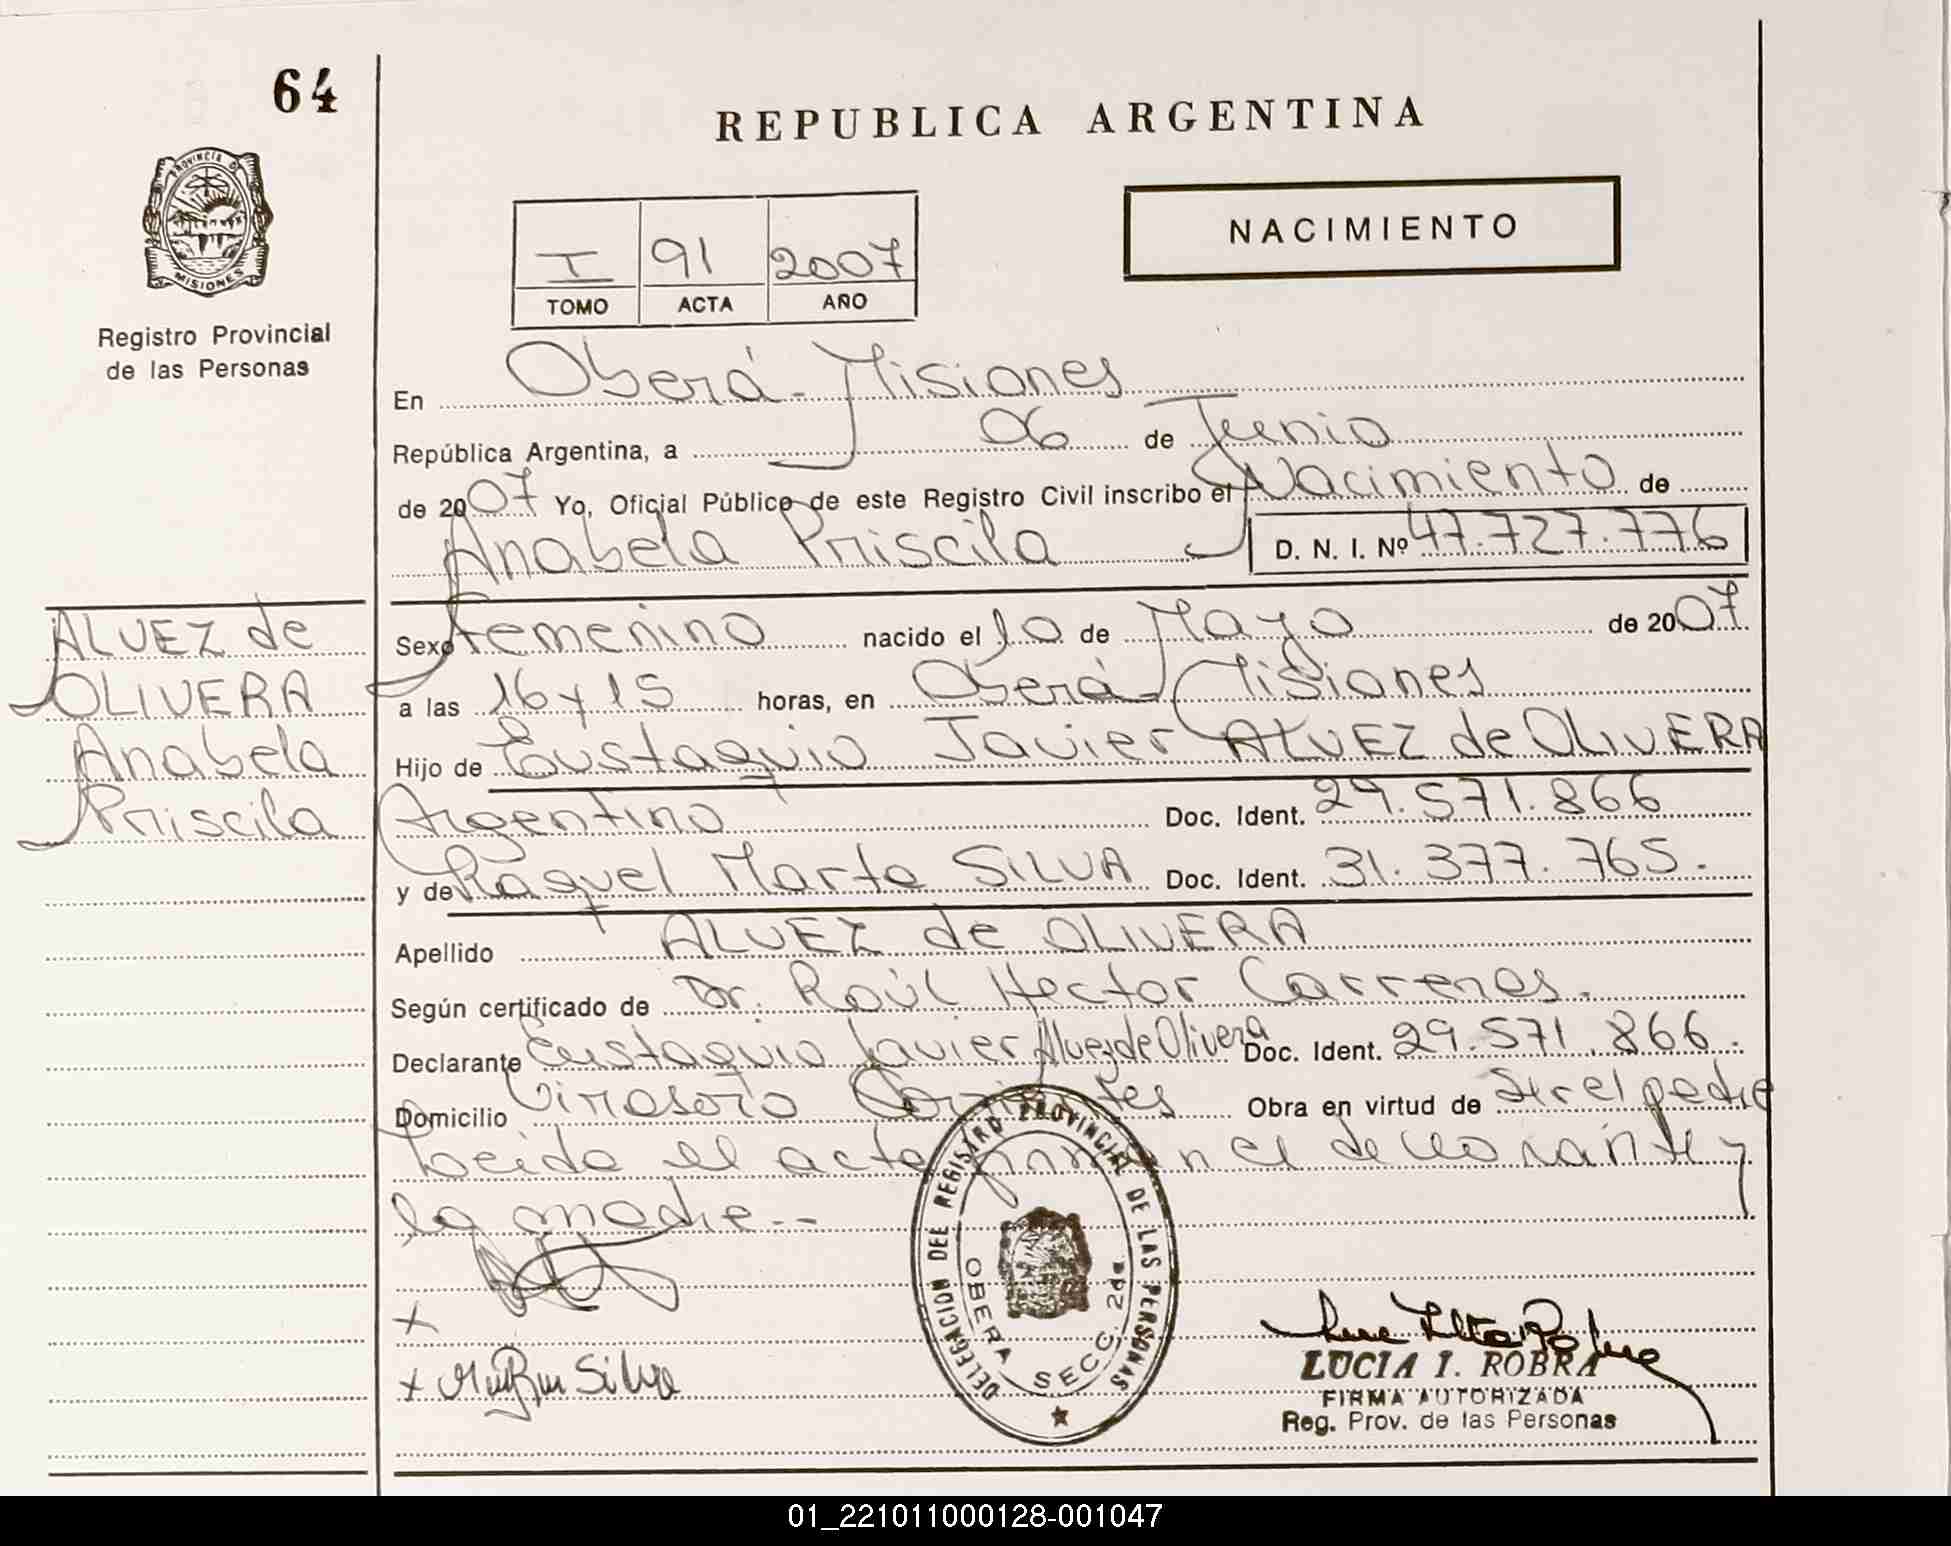 64
REPUBLICA ARGENTINA
PROVINCIA DE
MISIONES
Registro Provincial
de las Personas
NACIMIENTO
I 91 2007
TOMO ACTA AÑO
En Oberá - Misiones
República Argentina, a 06 de Junio
de 2007 Yo, Oficial Público de este Registro Civil inscribo el Nacimiento de
Anabela Priscila D. N. I. Nº 47.727.776
ALVEZ de
OLIVERA
Anabela
Priscila
Sexo femenino nacido el 10 de Mayo de 2007
a las 16 y 15 horas, en Oberá - Misiones
Hijo de Eustaquio Javier ALVEZ de OLIVERA
Argentino Doc. Ident. 29.571.866
y de Raquel Marta SILVA Doc. Ident. 31.377.765.
Apellido ALVEZ de OLIVERA
Según certificado de Dr. Raúl Hector Carreras.
Declarante Eustaquio Javier Alvez de Olivera Doc. Ident. 29.571.866.
Domicilio Virasoro Corrientes Obra en virtud de ser el padre
Leida el acta firman el declarante y
la madre --
x
x Silva
DELEGACION DEL REGISTRO PROVINCIAL DE LAS PERSONAS
OBERA SECC. 2da.
LUCIA I. ROBRA
FIRMA AUTORIZADA
Reg. Prov. de las Personas
01_221011000128-001047